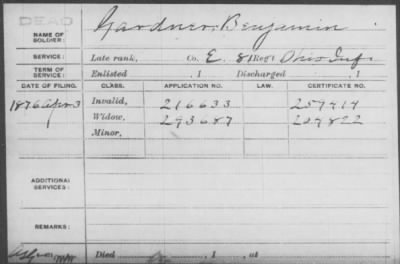 DEAD
NAME OF SOLDIER: Gardner, Benjamin
SERVICE: Late rank, Co. E, 81 Reg't Ohio Inf.
TERM OF SERVICE: Enlisted , 1 Discharged , 1
DATE OF FILING. CLASS. APPLICATION NO. LAW. CERTIFICATE NO.
1876 Apr 3 Invalid, 216633 259414
Widow, 293687 209822
Minor,
ADDITIONAL SERVICES:
REMARKS:
Died , 1 , at